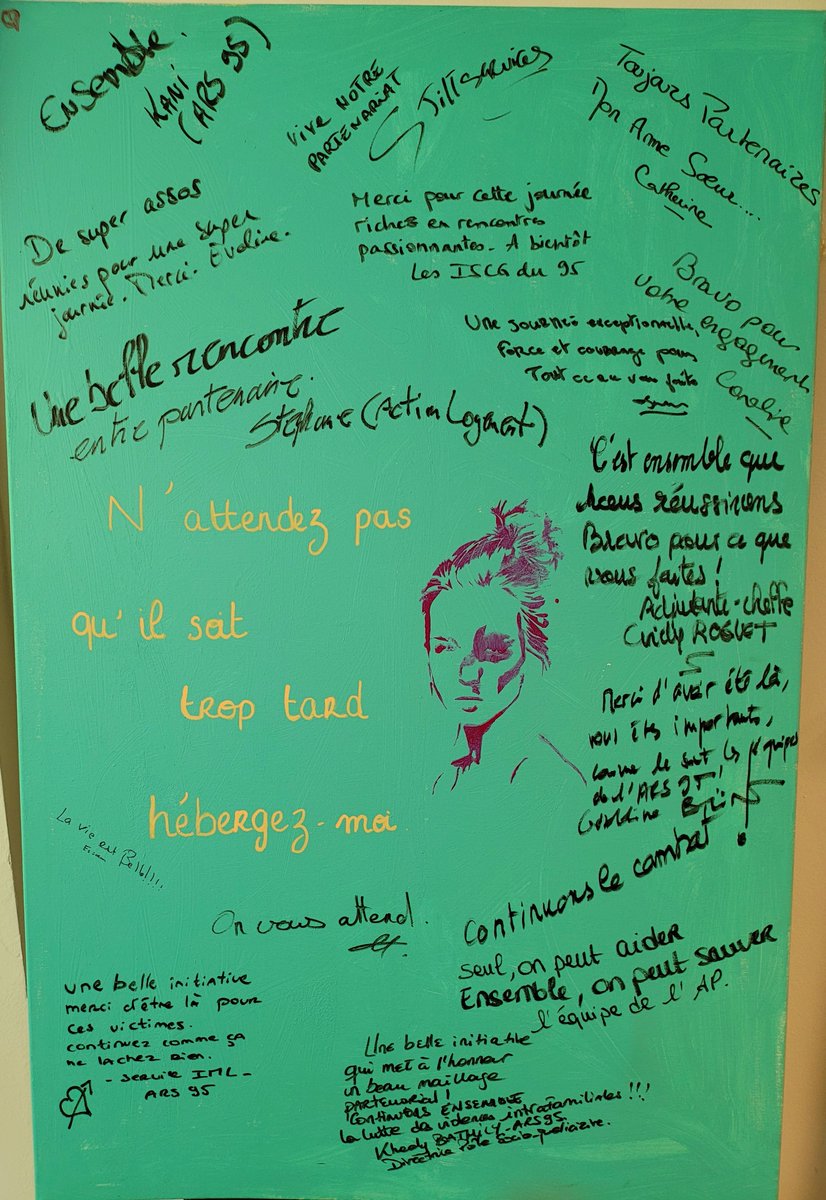 Ensemble.
KANI
(ARS 95)
Vive NOTRE
PARTENARIAT
Jilt services
Toujours Partenaires
Mon Ame Sœur...
Catherine
De super assos
réunies pour une super
journée. Merci. Eveline.
Merci pour cette journée
riches en rencontres
passionnantes. A bientôt
Les ISCG du 95
Bravo pour
votre engagement
Coraline
Une journée exceptionnelle,
Force et courage pour
Tout ce que vous faites
Une belle rencontre
entre partenaire.
Stéphane (Action Logement)
C'est ensemble que
nous réussirons
Bravo pour ce que
vous faites !
Adjudante-cheffe
ROGUET
N'attendez pas
qu'il soit
trop tard
hébergez-moi
Merci d'avoir été là,
vous êtes importants,
comme le sont les équipes
de l'ARS 95 !
Géraldine
La vie est Belle!!!!
Continuons le combat !
On vous attend.
seul, on peut aider
Ensemble, on peut sauver
l'équipe de l'AP.
une belle initiative
merci d'être là pour
ces victimes.
continuez comme ça
ne lachez rien.
- service IML -
ARS 95
Une belle initiative
qui met à l'honneur
un beau maillage
partenarial !
Continuons ENSEMBLE
la lutte des violences intrafamiliales !!!
Khady BATHILY-ARS95.
Directrice Pôle Socio-judiciaire.